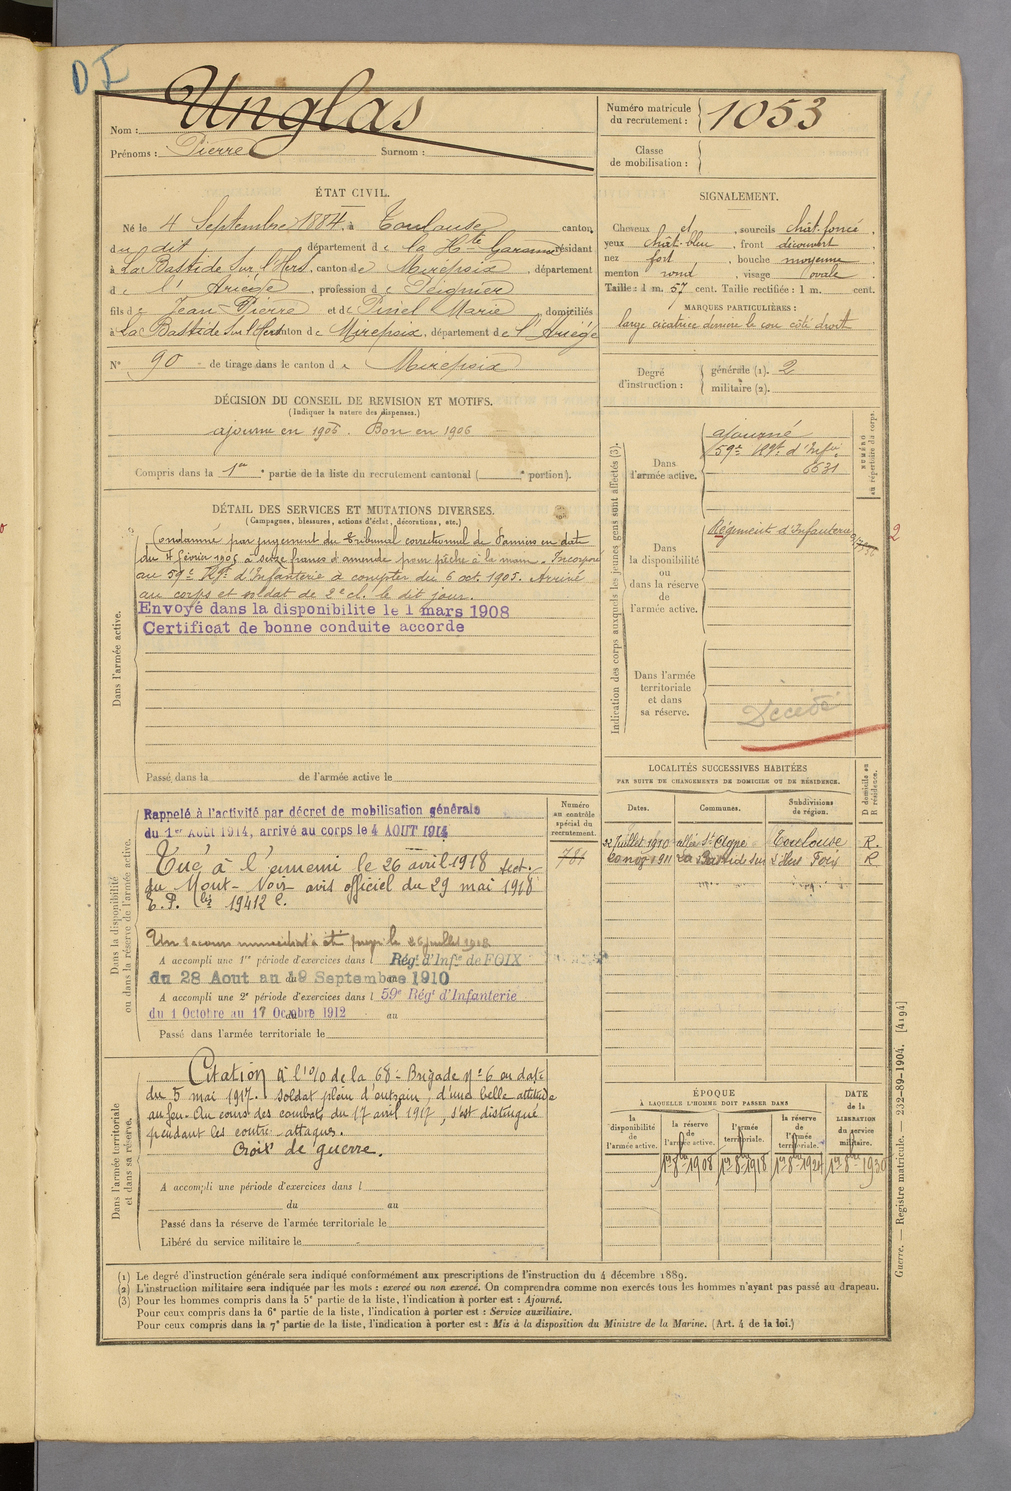 DF
Nom : Unglas
Prénoms : Pierre Surnom :
Numéro matricule du recrutement : 1053
Classe de mobilisation :
ÉTAT CIVIL.
Né le 4 Septembre 1884, à Toulouse canton
du dit département de la Hte Garonne résidant
à La Bastide sur l'Hers, canton de Mirepoix, département
d e l'Ariège, profession de Peignier
fils de Jean Pierre et de Pinel Marie domiciliés
à La Bastide sur l'Hers canton de Mirepoix, département de l'Ariège
N° 90 de tirage dans le canton de Mirepoix
DÉCISION DU CONSEIL DE REVISION ET MOTIFS.
(Indiquer la nature des dispenses.)
ajourné en 1905. Bon en 1906
Compris dans la 1re partie de la liste du recrutement cantonal ( e portion).
DÉTAIL DES SERVICES ET MUTATIONS DIVERSES.
(Campagnes, blessures, actions d'éclat, décorations, etc.)
Dans l'armée active.
Condamné par jugement du Tribunal correctionnel de Pamiers en date
du février 1905 à seize francs d'amende pour pêche à la main. Incorporé
au 59e Rgt d'Infanterie à compter du 6 oct 1905. Arrivé
au corps et soldat de 2e cl. le dit jour.
Envoyé dans la disponibilite le 1 mars 1908
Certificat de bonne conduite accorde
Passé dans la de l'armée active le
Dans la disponibilité ou dans la réserve de l'armée active.
Rappelé à l'activité par décret de mobilisation générale
du 1er Août 1914, arrivé au corps le 4 AOUT 1914
Tué à l'ennemi le 26 avril 1918 sect.
du Mont-Noir avis officiel du 29 mai 1918
19412
Un secours immédiat a été payé le 26 juillet 1918
A accompli une 1re période d'exercices dans l Régt d'Infie de FOIX
du 28 Aout au 19 Septembre 1910
A accompli une 2e période d'exercices dans l 59e Régt d'Infanterie
du 1 Octobre au 17 Octobre 1912 au
Passé dans l'armée territoriale le
Numéro au contrôle spécial du recrutement.
781
Dans l'armée territoriale et dans sa réserve.
Citation à l'o/o de la 68e Brigade N° 6 en date
du 5 mai 1917. Soldat plein d'entrain, d'une belle attitude
au feu. Au cours des combats du 17 avril 1917, s'est distingué
pendant les contre-attaques.
Croix de guerre.
A accompli une période d'exercices dans l
du au
Passé dans la réserve de l'armée territoriale le
Libéré du service militaire le
SIGNALEMENT.
Cheveux et , sourcils chât. foncé ,
yeux chât-bleu , front découvert ,
nez fort , bouche moyenne ,
menton rond , visage ovale .
Taille : 1 m. 57 cent. Taille rectifiée : 1 m. cent.
MARQUES PARTICULIÈRES :
large cicatrice derrière le cou côté droit
Degré d'instruction :
générale (1). 2
militaire (2).
Indication des corps auxquels les jeunes gens sont affectés (3).
NUMÉRO au répertoire du corps.
Dans l'armée active.
ajourné
59e Rgt d'Infie
6631
Dans la disponibilité ou dans la réserve de l'armée active.
Régiment d'Infanterie
2
Dans l'armée territoriale et dans sa réserve.
Décédé
LOCALITÉS SUCCESSIVES HABITÉES
PAR SUITE DE CHANGEMENTS DE DOMICILE OU DE RÉSIDENCE.
D domicile ou R résidence.
Dates. Communes. Subdivisions de région.
22 juillet 1910 allée St Agne Toulouse R.
1911 La Bastide sur l'Hers Foix R
ÉPOQUE
À LAQUELLE L'HOMME DOIT PASSER DANS
DATE de la LIBÉRATION du service militaire.
la disponibilité de l'armée active.
la réserve de l'armée active.
l'armée territoriale.
la réserve de l'armée territoriale.
1er 8bre 1908 1er 8bre 1918 1er 8bre 1924 1er 8bre 1930
(1) Le degré d'instruction générale sera indiqué conformément aux prescriptions de l'instruction du 4 décembre 1889.
(2) L'instruction militaire sera indiquée par les mots : exercé ou non exercé. On comprendra comme non exercés tous les hommes n'ayant pas passé au drapeau.
(3) Pour les hommes compris dans la 5e partie de la liste, l'indication à porter est : Ajourné.
Pour ceux compris dans la 6e partie de la liste, l'indication à porter est : Service auxiliaire.
Pour ceux compris dans la 7e partie de la liste, l'indication à porter est : Mis à la disposition du Ministre de la Marine. (Art. 4 de la loi.)
Guerre. — Registre matricule. — 232-89-1904. [4194]